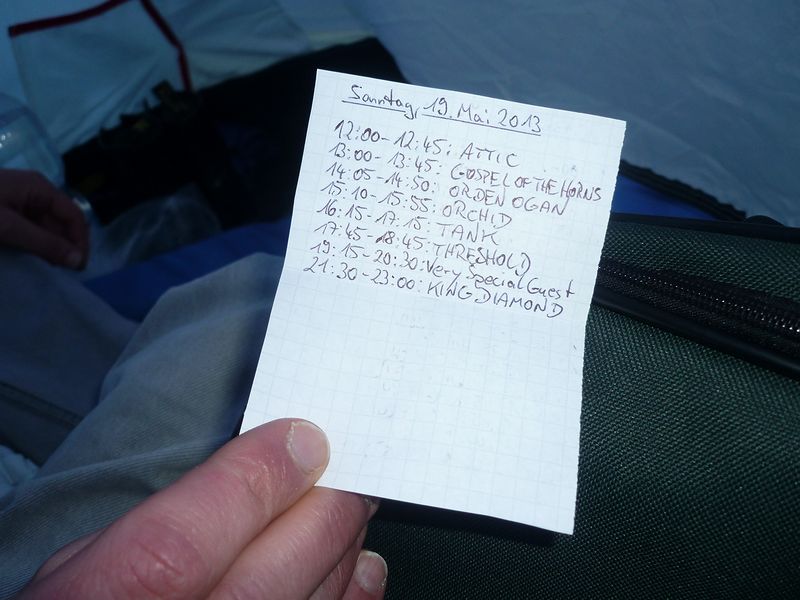 Sonntag, 19. Mai 2013
12:00-12:45: ATTIC
13:00-13:45: GOSPEL OF THE HORNS
14:05-14:50: ORDEN OGAN
15:10-15:55: ORCHID
16:15-17:15: TANK
17:45-18:45: THRESHOLD
19:15-20:30: Very Special Guest
21:30-23:00: KING DIAMOND